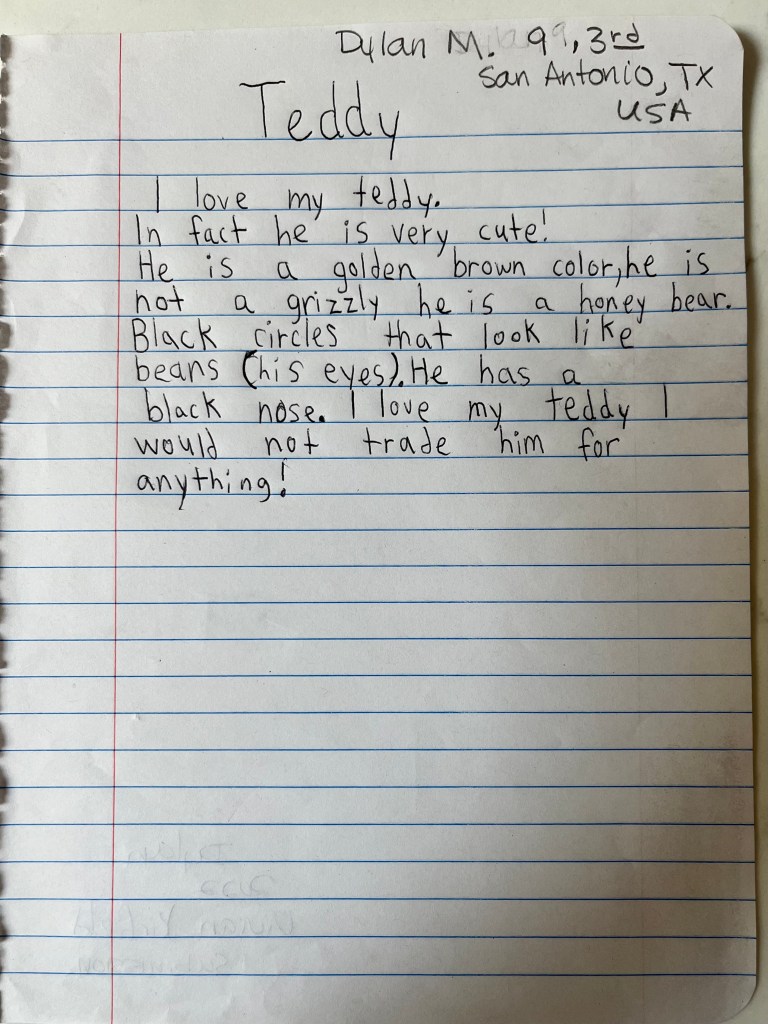 Dylan M. 9, 3rd
San Antonio, TX
USA
Teddy
I love my teddy.
In fact he is very cute!
He is a golden brown color, he is
not a grizzly he is a honey bear.
Black circles that look like
beans (his eyes). He has a
black nose. I love my teddy I
would not trade him for
anything!